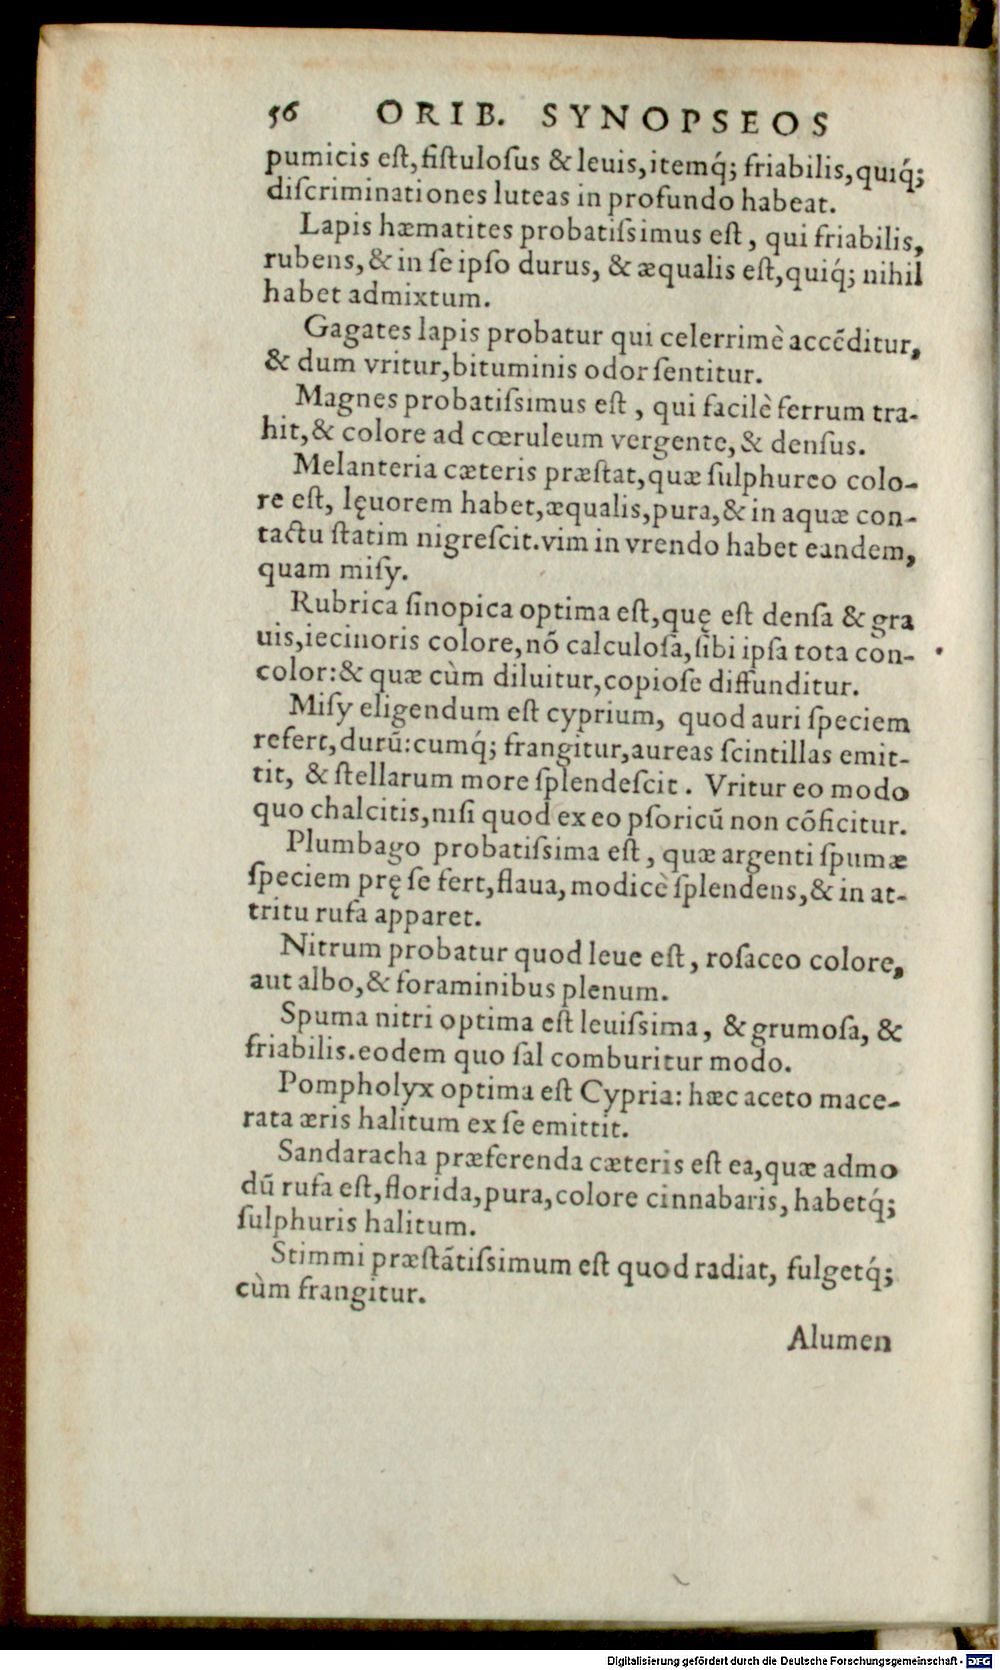 56 ORIB. SYNOPSEOS
pumicis eſt, fiſtuloſus & leuis, itemq́; friabilis, quiq́;
diſcriminationes luteas in profundo habeat.
Lapis hæmatites probatiſsimus eſt, qui friabilis,
rubens, & in ſe ipſo durus, & æqualis eſt, quiq́; nihil
habet admixtum.
Gagates lapis probatur qui celerrimè accẽditur,
& dum vritur, bituminis odor ſentitur.
Magnes probatiſsimus eſt, qui facilè ferrum tra-
hit, & colore ad cœruleum vergente, & denſus.
Melanteria cæteris præſtat, quæ ſulphureo colo-
re eſt, lęuorem habet, æqualis, pura, & in aquæ con-
tactu ſtatim nigreſcit. vim in vrendo habet eandem,
quam miſy.
Rubrica ſinopica optima eſt, quę eſt denſa & gra
uis, iecinoris colore, nõ calculoſa, ſibi ipſa tota con-
color: & quæ cùm diluitur, copioſe diffunditur.
Miſy eligendum eſt cyprium, quod auri ſpeciem
refert, durũ: cumq́; frangitur, aureas ſcintillas emit-
tit, & ſtellarum more ſplendeſcit. Vritur eo modo
quo chalcitis, niſi quod ex eo pſoricũ non cõficitur.
Plumbago probatiſsima eſt, quæ argenti ſpumæ
ſpeciem pręſe fert, flaua, modicè ſplendens, & in at-
tritu rufa apparet.
Nitrum probatur quod leue eſt, roſaceo colore,
aut albo, & foraminibus plenum.
Spuma nitri optima eſt leuiſsima, & grumoſa, &
friabilis. eodem quo ſal comburitur modo.
Pompholyx optima eſt Cypria: hæc aceto mace-
rata æris halitum ex ſe emittit.
Sandaracha præferenda cæteris eſt ea, quæ admo
dũ rufa eſt, florida, pura, colore cinnabaris, habetq́;
ſulphuris halitum.
Stimmi præſtãtiſsimum eſt quod radiat, fulgetq́;
cùm frangitur.
Alumen
Digitalisierung gefördert durch die Deutsche Forschungsgemeinschaft - DFG